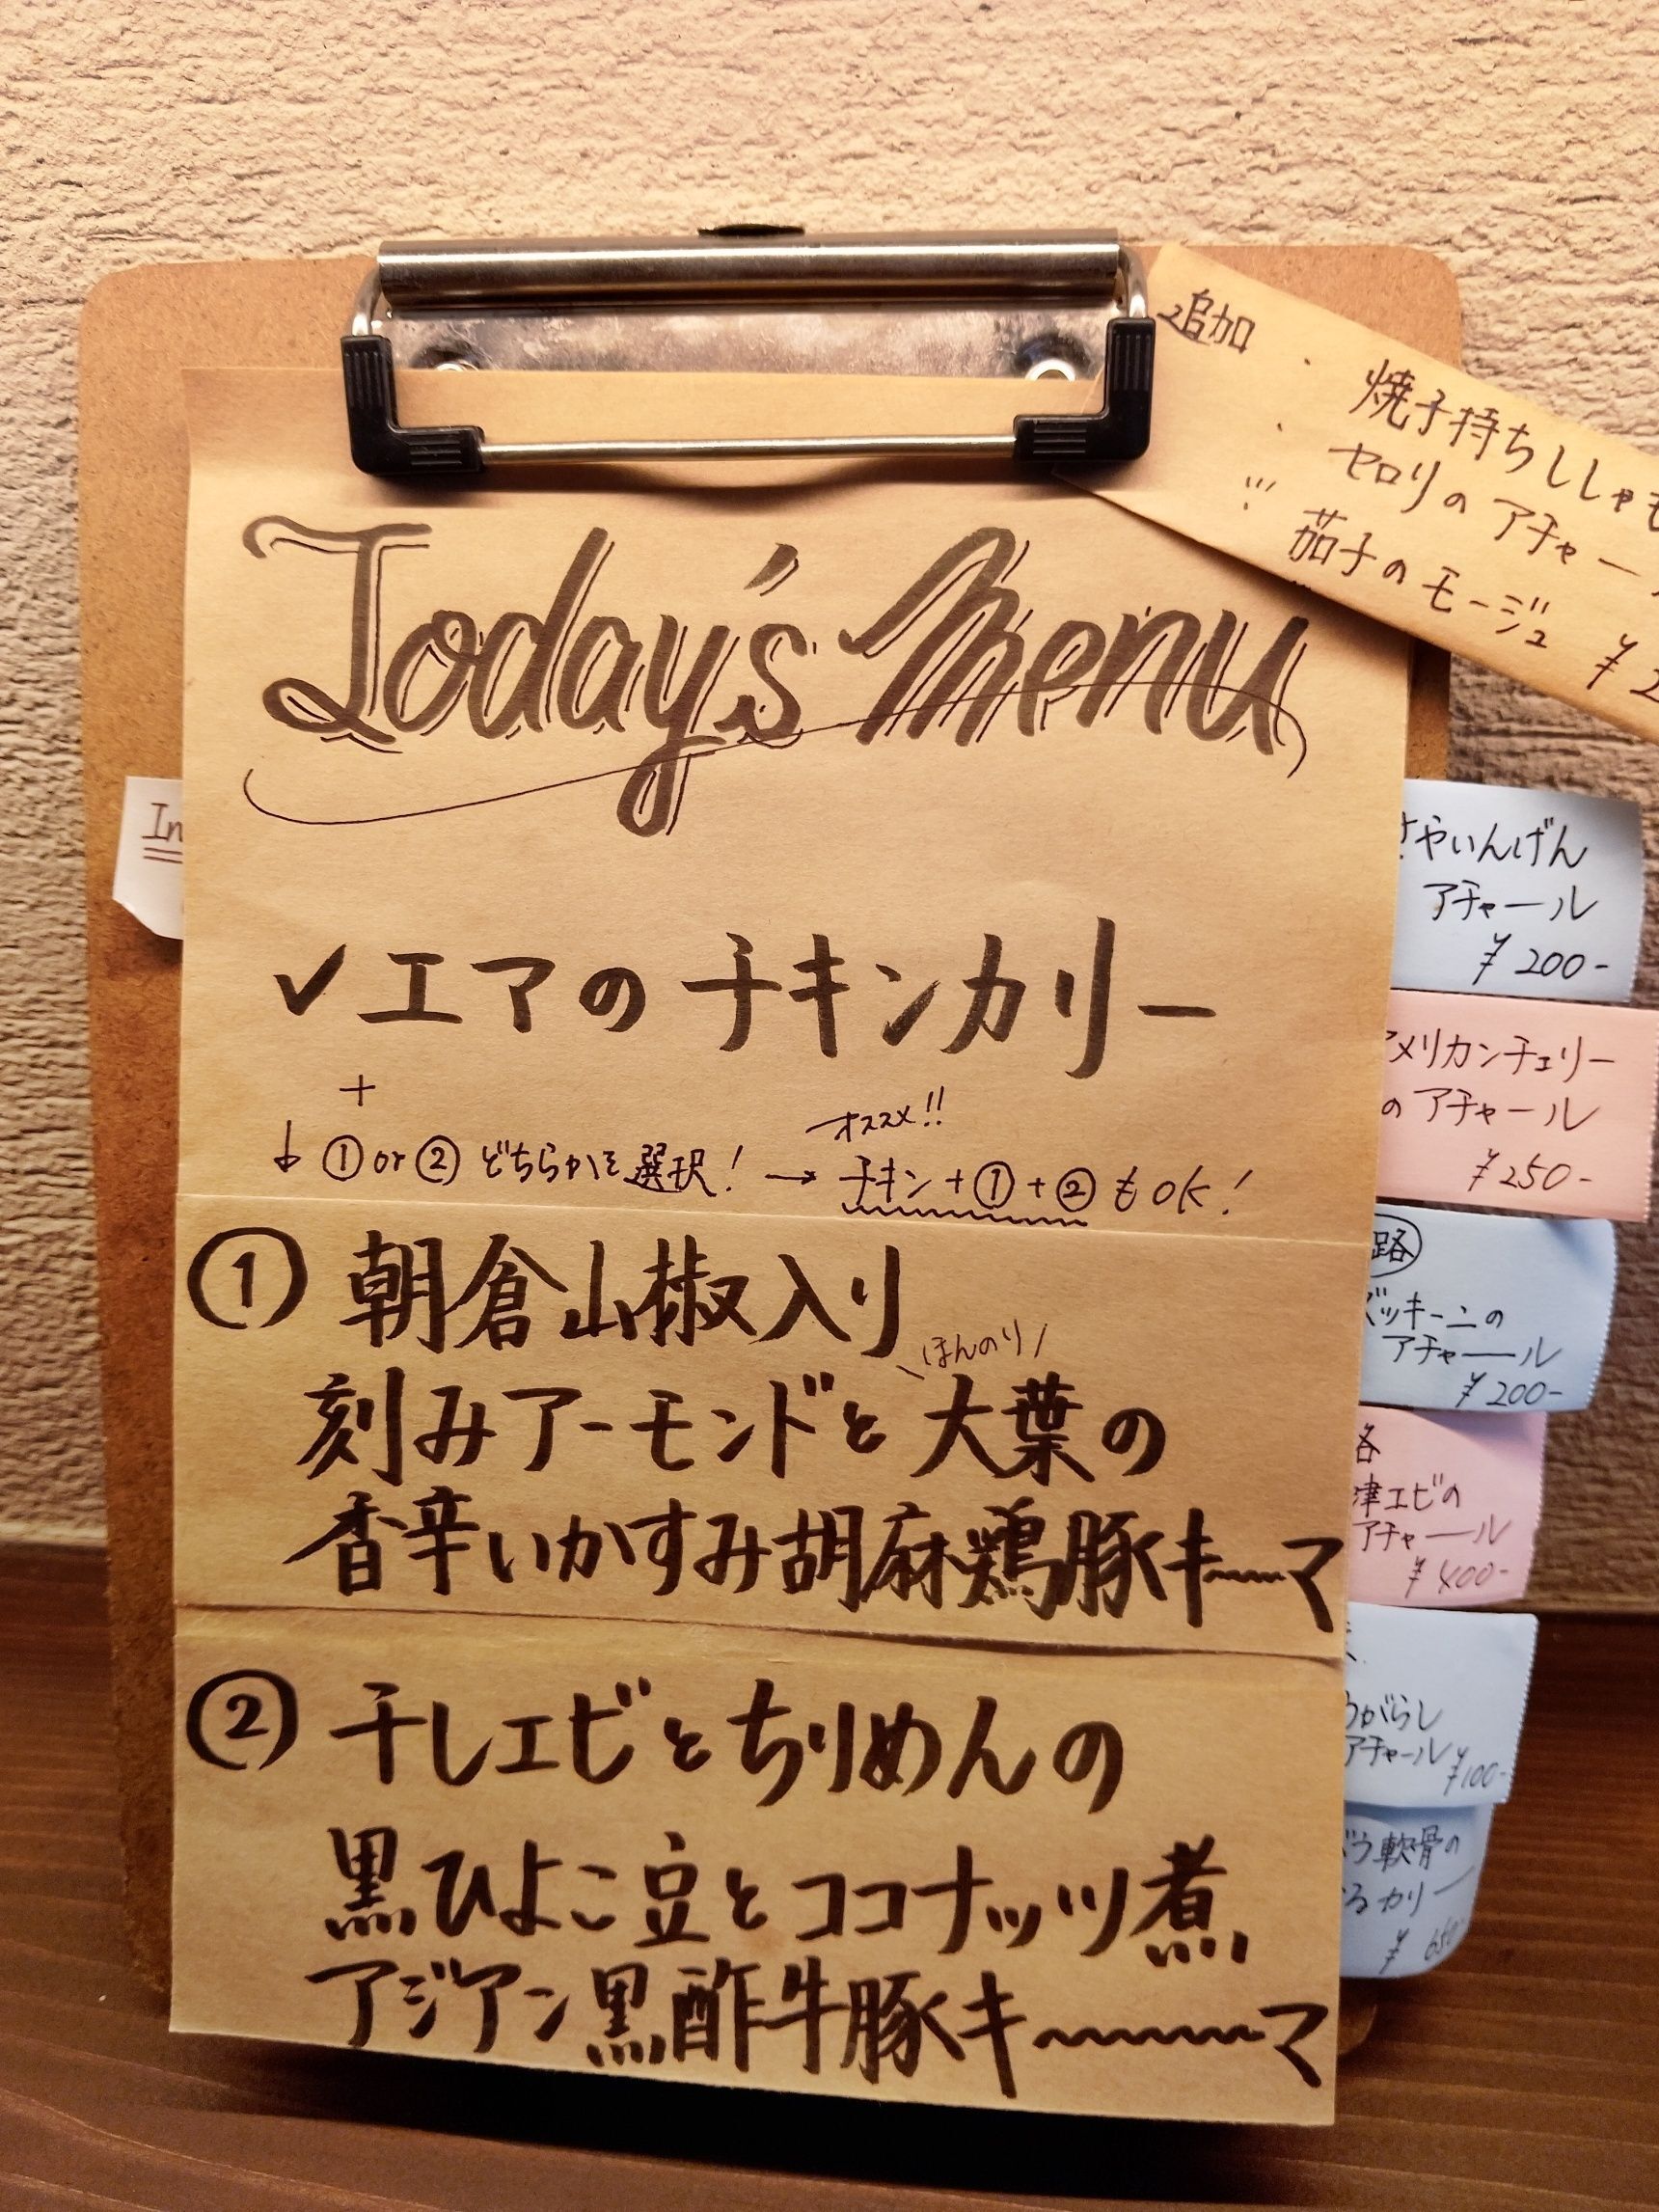 Today's Menu
✓エアのチキンカリー
+
↓ ①or② どちらかを選択! → チキン+①+②もOK!
オススメ!!
① 朝倉山椒入り
刻みアーモンドと大葉の
\ほんのり/
香辛いかすみ胡麻鶏豚キーマ
② 干しエビとちりめんの
黒ひよこ豆とココナッツ煮
アジアン黒酢牛豚キーマ
追加
・焼子持ちししゃも
・セロリのアチャー
茄子のモージュ ¥2
In
さやいんげん
アチャール
¥200-
アメリカンチェリー
のアチャール
¥250-
路
ズッキーニの
アチャール
¥200-
各
津エビの
アチャール
¥400-
うがらし
アチャール ¥100-
軟骨の
るカリー
¥650-